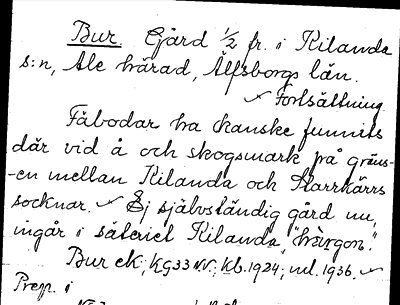 Bur. Gård 1/2 fr. i Kilanda
s:n, Ale härad, Älfsborgs län.
Fortsättning.
Fäbodar ha kanske funnits
där vid å och skogsmark på gräns-
-en mellan Kilanda och Starrkärrs
socknar. Ej självständig gård nu,
ingår i säteriet Kilanda, "hàrgon".
Bur ek; KG33NV; kb. 1924; upl. 1936.
Prep. i